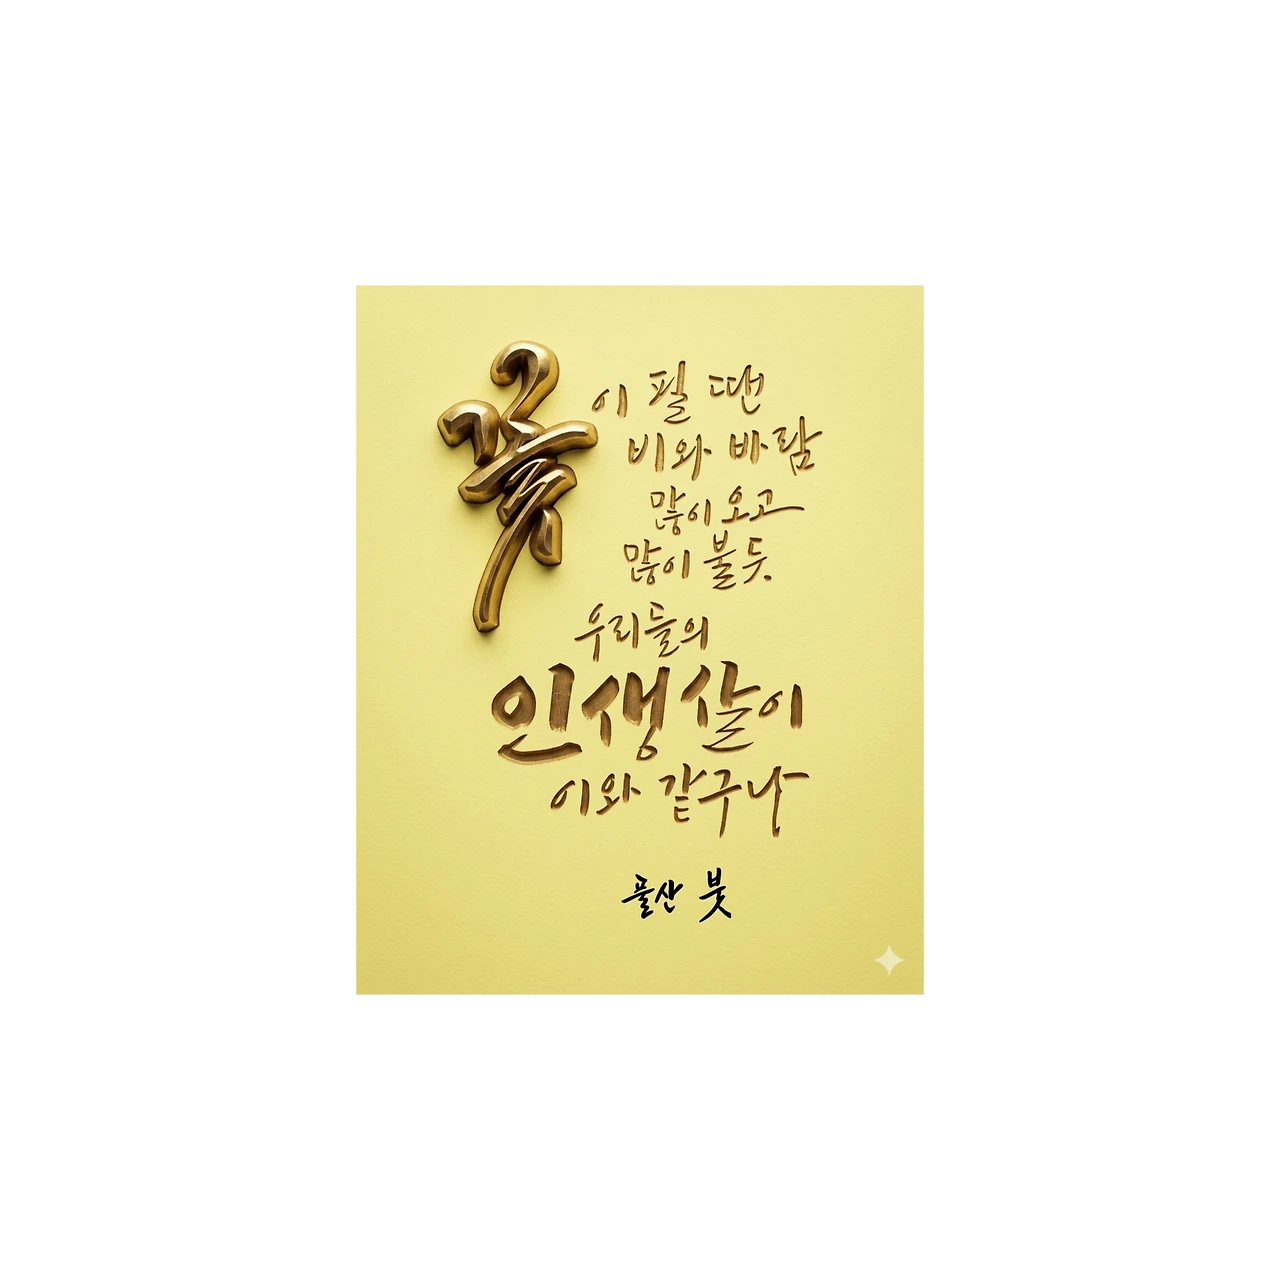 꽃이 필 땐
비와 바람
많이 오고
많이 불듯
우리들의
인생살이
이와 같구나
풀산 붓